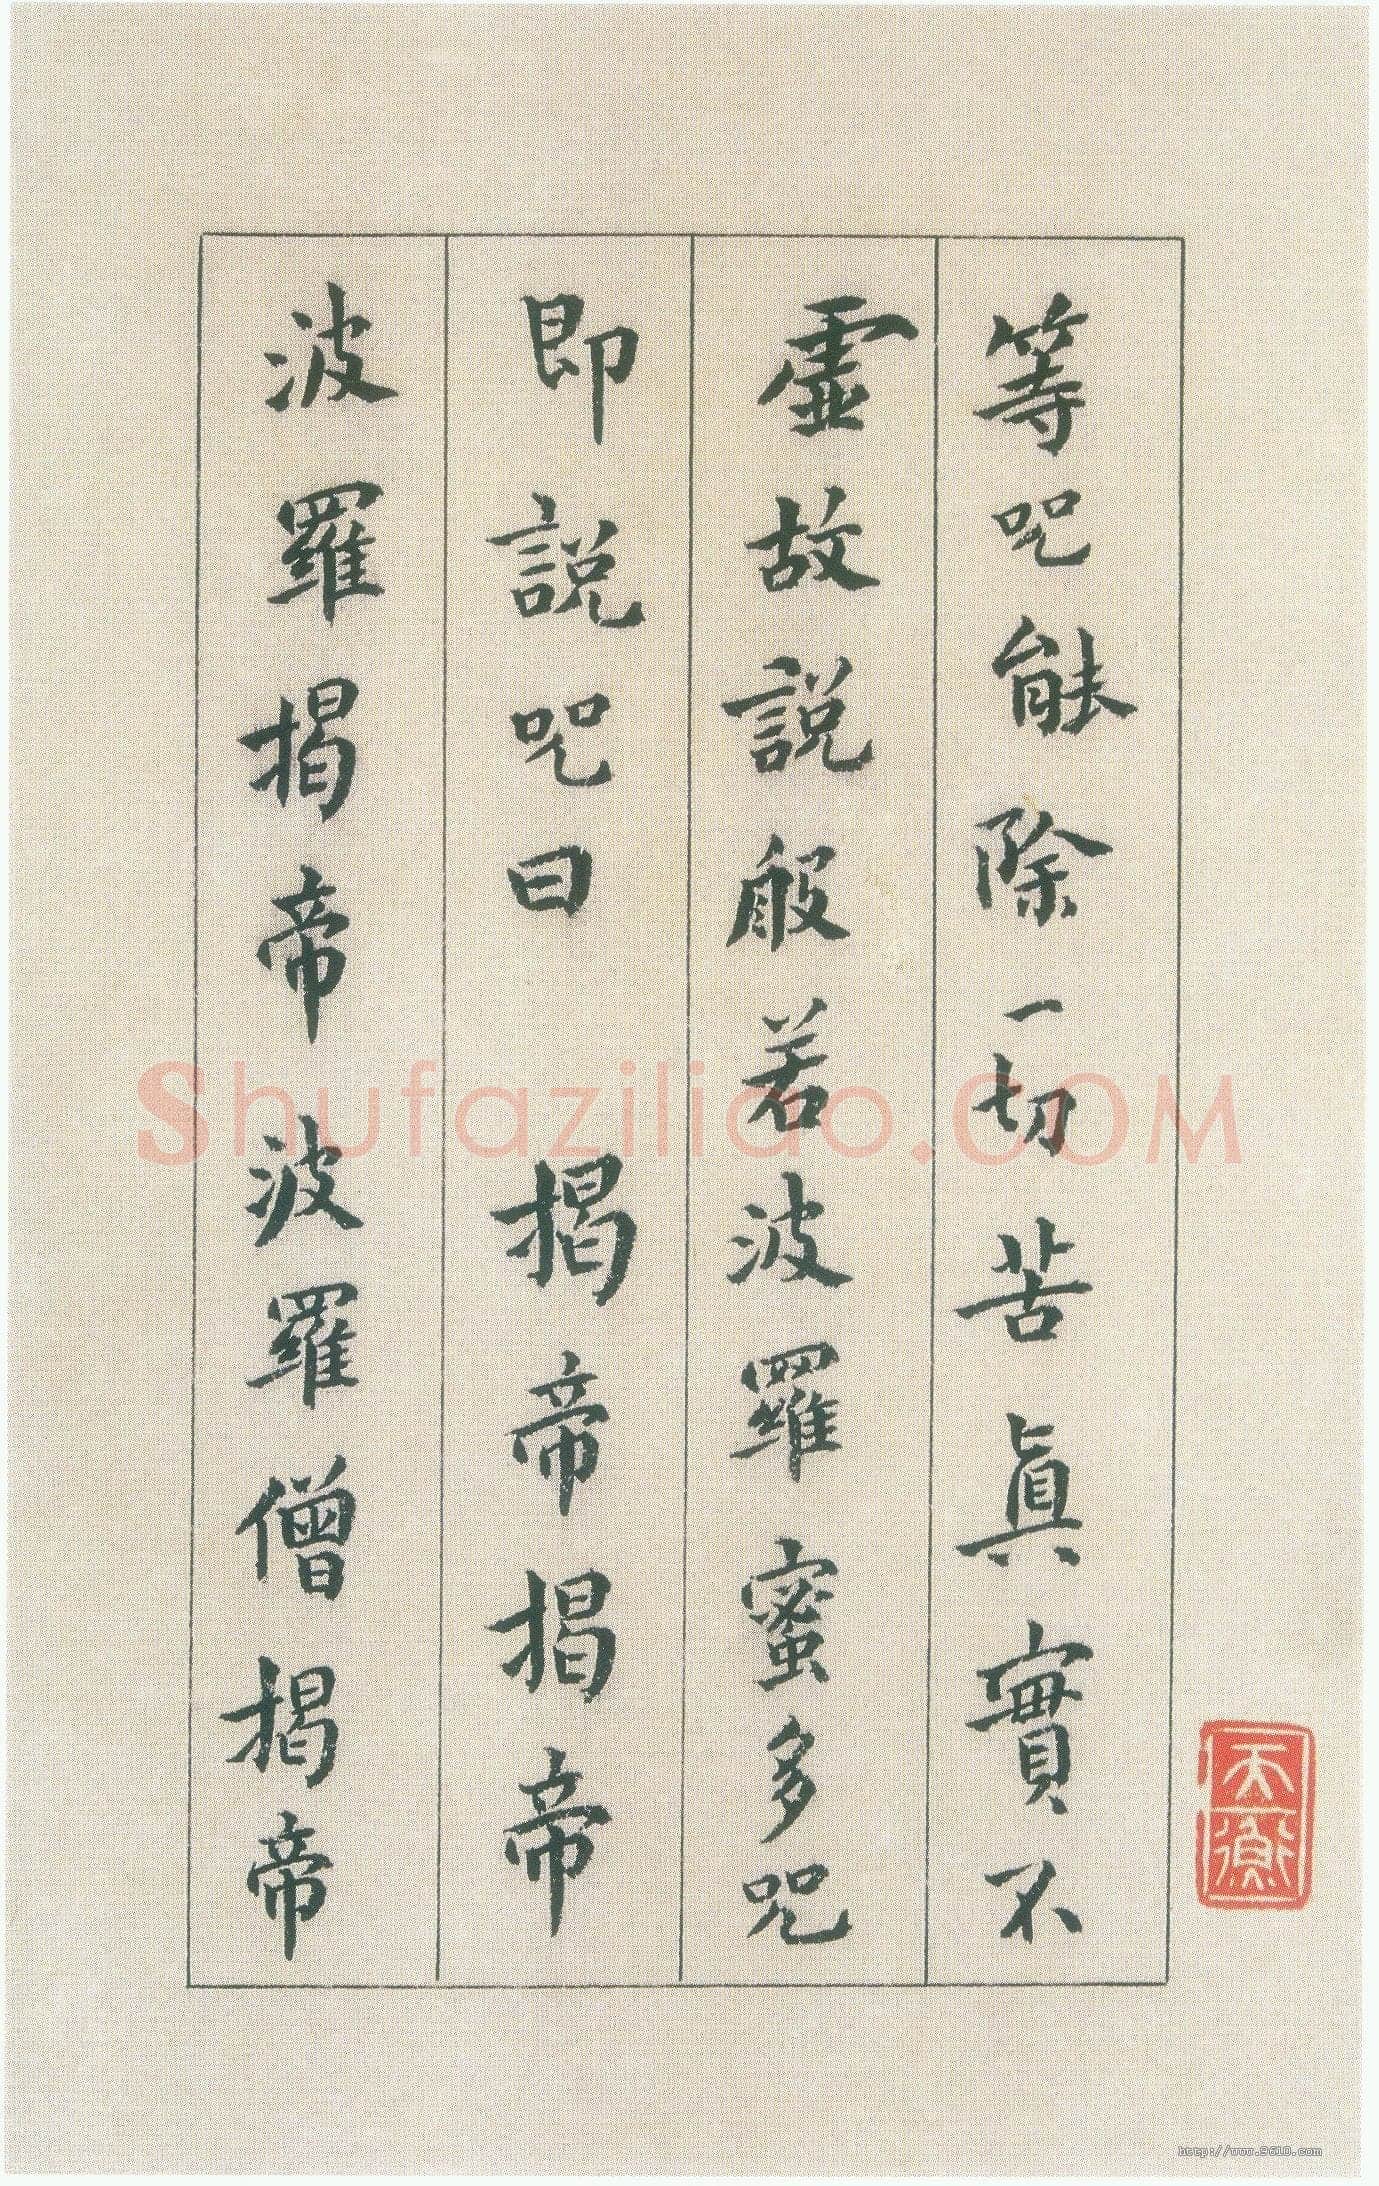 等咒能除一切苦眞實不
虛故說般若波羅蜜多咒
即說咒曰 揭帝揭帝
波羅揭帝波羅僧揭帝
天衡
Shufaziliao.COM
http://www.9610.com